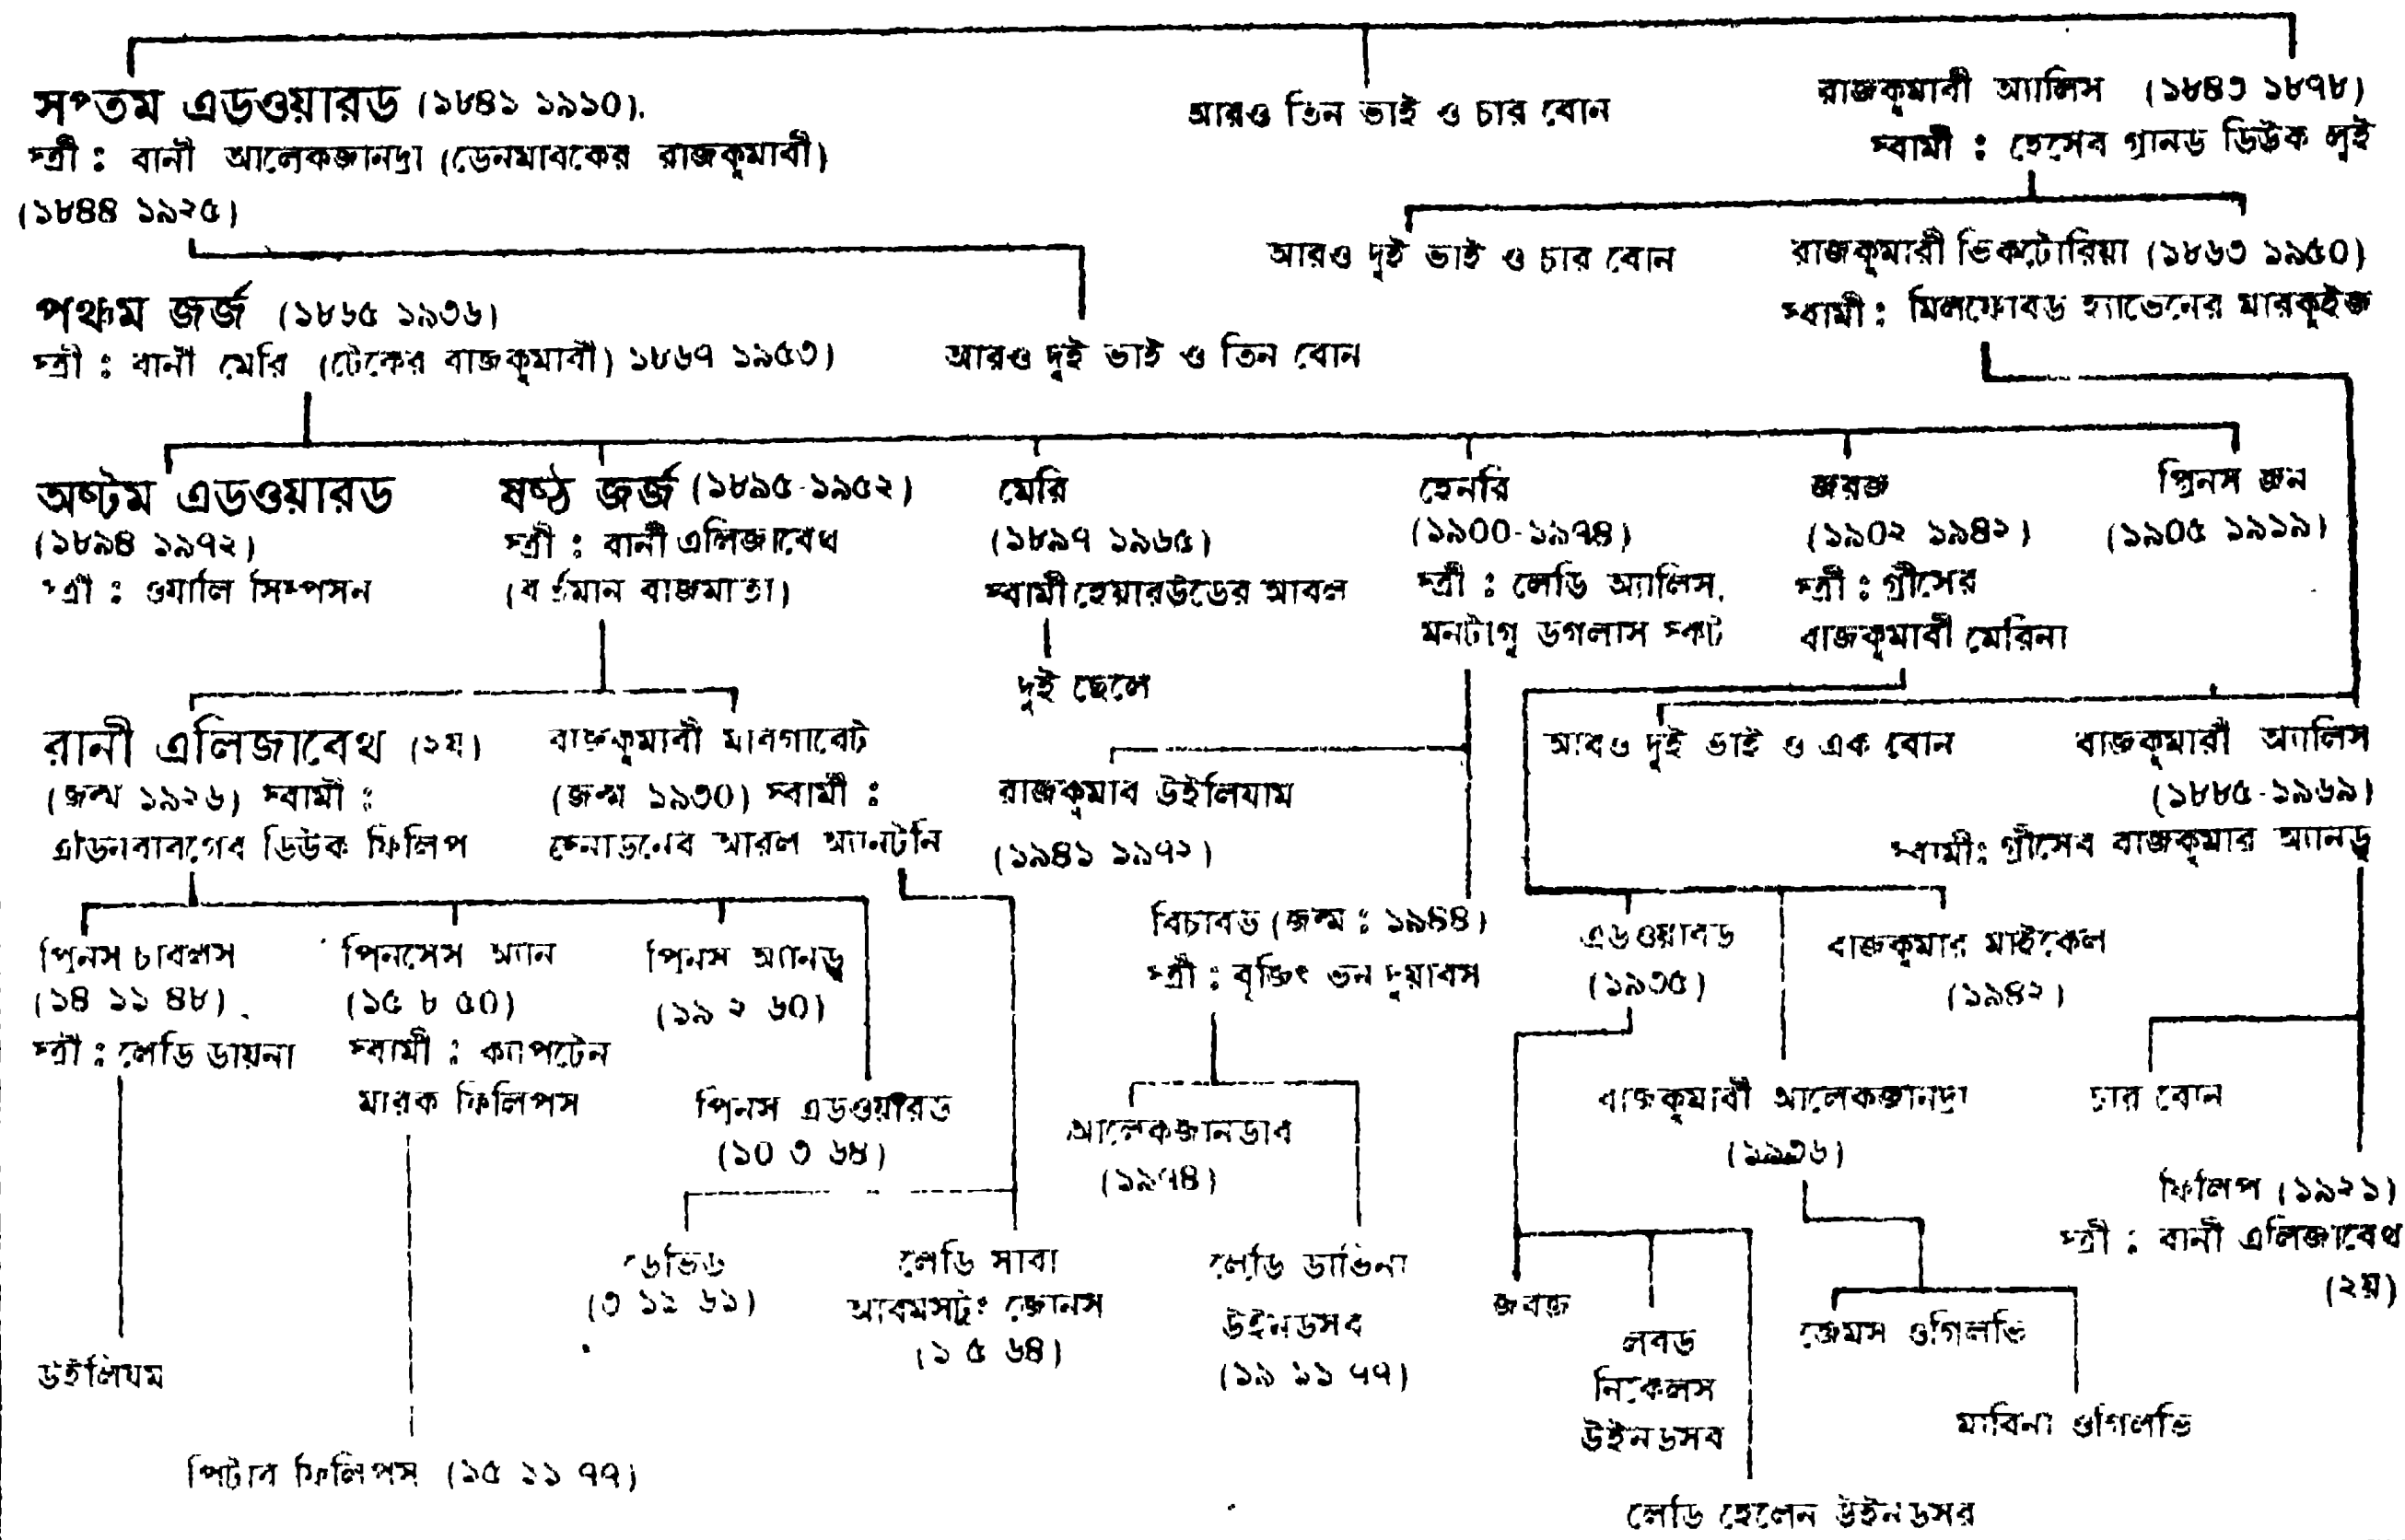 সপ্তম এডওয়ারড (১৮৪১ ১৯১০).
স্ত্রী : বানী আলেকজানদ্রা (ডেনমাবকের রাজকুমাবী)
(১৮৪৪ ১৯২৫)
আরও তিন ভাই ও চার বোন
রাজকুমাবী অ্যালিস (১৮৪৩ ১৮৭৮)
স্বামী : হেসেব গ্রানড ডিউক লুই
আরও দুই ভাই ও চার বোন
রাজকুমারী ভিকটোরিয়া (১৮৬৩ ১৯৫০)
স্বামী : মিলফোবড হ্যাভেনের মারকুইজ
পঞ্চম জর্জ (১৮৬৫ ১৯৩৬)
স্ত্রী : বানী মেরি (টেকের বাজকুমাবী) ১৮৬৭ ১৯৫৩)
আরও দুই ভাই ও তিন বোন
অষ্টম এডওয়ারড
(১৮৯৪ ১৯৭২)
স্ত্রী : ওয়ালি সিম্পসন
ষষ্ঠ জর্জ (১৮৯৫-১৯৫২)
স্ত্রী : বানী এলিজাবেথ
(বর্তমান বাজমাতা)
মেরি
(১৮৯৭ ১৯৬৫)
স্বামী হেয়ারউডের আবল
দুই ছেলে
হেনরি
(১৯০০-১৯৭৪)
স্ত্রী : লেডি অ্যালিস,
মনটাগু ডগলাস স্কট
জরজ
(১৯০২ ১৯৪২)
স্ত্রী : গ্রীসের
বাজকুমাবী মেরিনা
প্রিনস জন
(১৯০৫ ১৯১৯)
রানী এলিজাবেথ (২য়)
(জন্ম ১৯২৬) স্বামী :
এডিনবাবগেব ডিউক ফিলিপ
বাজকুমাবী মাবগাবেট
(জন্ম ১৯৩০) স্বামী :
স্নোডনেব আরল অ্যানটনি
রাজকুমাব উইলিযাম
(১৯৪১ ১৯৭২)
আবও দুই ভাই ও এক বোন
বাজকুমারী অ্যালিস
(১৮৮৫-১৯৬৯)
স্বামী: গ্রীসেব বাজকুমার অ্যানড্রু
প্রিনস চাবলস
(১৪ ১১ ৪৮)
স্ত্রী : লেডি ডায়না
প্রিনসেস অ্যান
(১৫ ৮ ৫০)
স্বামী : ক্যাপটেন
মারক ফিলিপস
প্রিনস অ্যানড্রু
(১৯ ২ ৬০)
বিচাবড (জন্ম : ১৯৪৪)
স্ত্রী : বৃজিৎ ভন দুয়াবস
এডওয়াবড
(১৯৩৫)
বাজকুমার মাইকেল
(১৯৪২)
প্রিনস এডওয়ারড
(১০ ৩ ৬৪)
আলেকজানডাব
(১৯৭৪)
বাজকুমাবী আলেকজানদ্রা
(১৯৩৬)
চার বোন
ফিলিপ (১৯২১)
স্ত্রী : বানী এলিজাবেথ
(২য়)
ডেভিড
(৩ ১১ ৬১)
লেডি সাবা
আবমসট্রং জোনস
(১ ৫ ৬৪)
লেডি ডাভিনা
উইনডসব
(১৯ ১১ ৭৭)
জবজ
লবড
নিকোলস
উইনডসব
জেমস ওগিলভি
মাবিনা ওগিলভি
উইলিযম
পিটাব ফিলিপস (১৫ ১১ ৭৭)
লেডি হেলেন উইনডসর